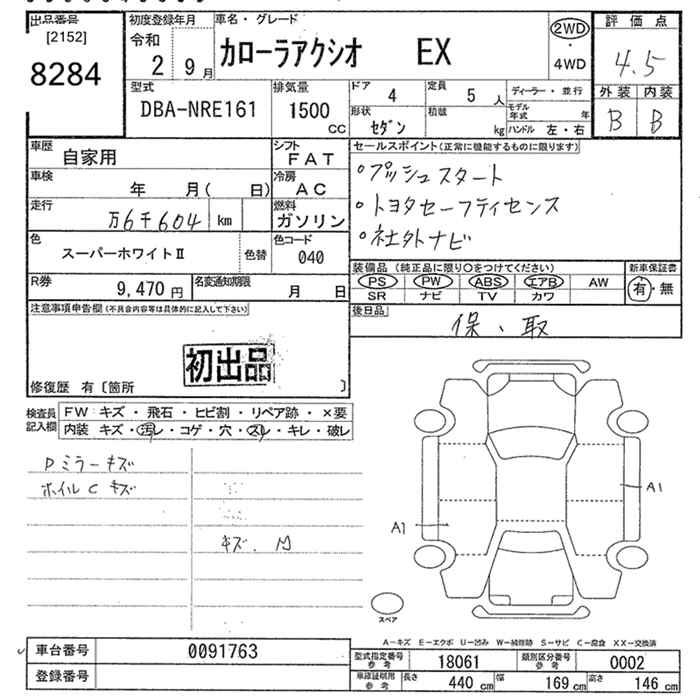 出品番号
[2152]
8284
初度登録年月
令和
2 9月
車名・グレード
カローラアクシオ EX
2WD
・
4WD
評価点
4.5
外装 内装
B B
型式
DBA-NRE161
排気量
1500
CC
ドア
4
定員
5 人
ディーラー・並行
形状
セダン
積載
kg
モデル年式 年
ハンドル 左・右
車歴
自家用
シフト
FAT
車検
年 月( 日)
冷房
AC
走行
万6千604 km
燃料
ガソリン
色
スーパーホワイトⅡ
色替
色コード
040
R券
9,470 円
名変通知期限
月 日
セールスポイント(正常に機能するものに限ります)
・プッシュスタート
・トヨタセーフティセンス
・社外ナビ
装備品(純正品に限り○をつけてください)
新車保証書
PS PW ABS エアB AW
SR ナビ TV カワ
有・無
後日品
保、取
注意事項申告欄(不具合内容等は具体的に記入して下さい)
初出品
修復歴 有〔箇所 〕
検査員
記入欄
FW キズ・飛石・ヒビ割・リペア跡・×要
内装 キズ・汚レ・コゲ・穴・スレ・キレ・破レ
Pミラーキズ
ホイルC キズ
キズ、
A1
A1
スペア
A-キズ E-エクボ U-凹み W-補修跡 S-サビ C-腐食 XX-交換済
車台番号
0091763
登録番号
型式指定番号
参考
18061
類別区分番号
参考
0002
車庫証明用
参考
長さ
440 cm
幅
169 cm
高さ
146 cm